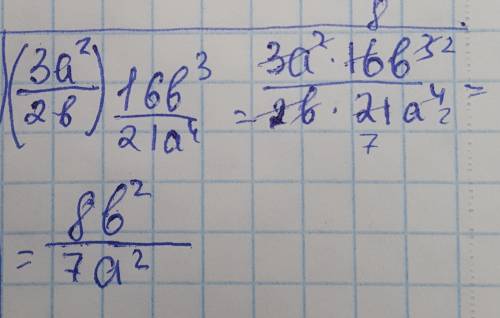 (3a²/2b) 16b³/21a⁴ = 3a²·16b³/2b·21a⁴ =
8 2
2
7
= 8b²/7a²